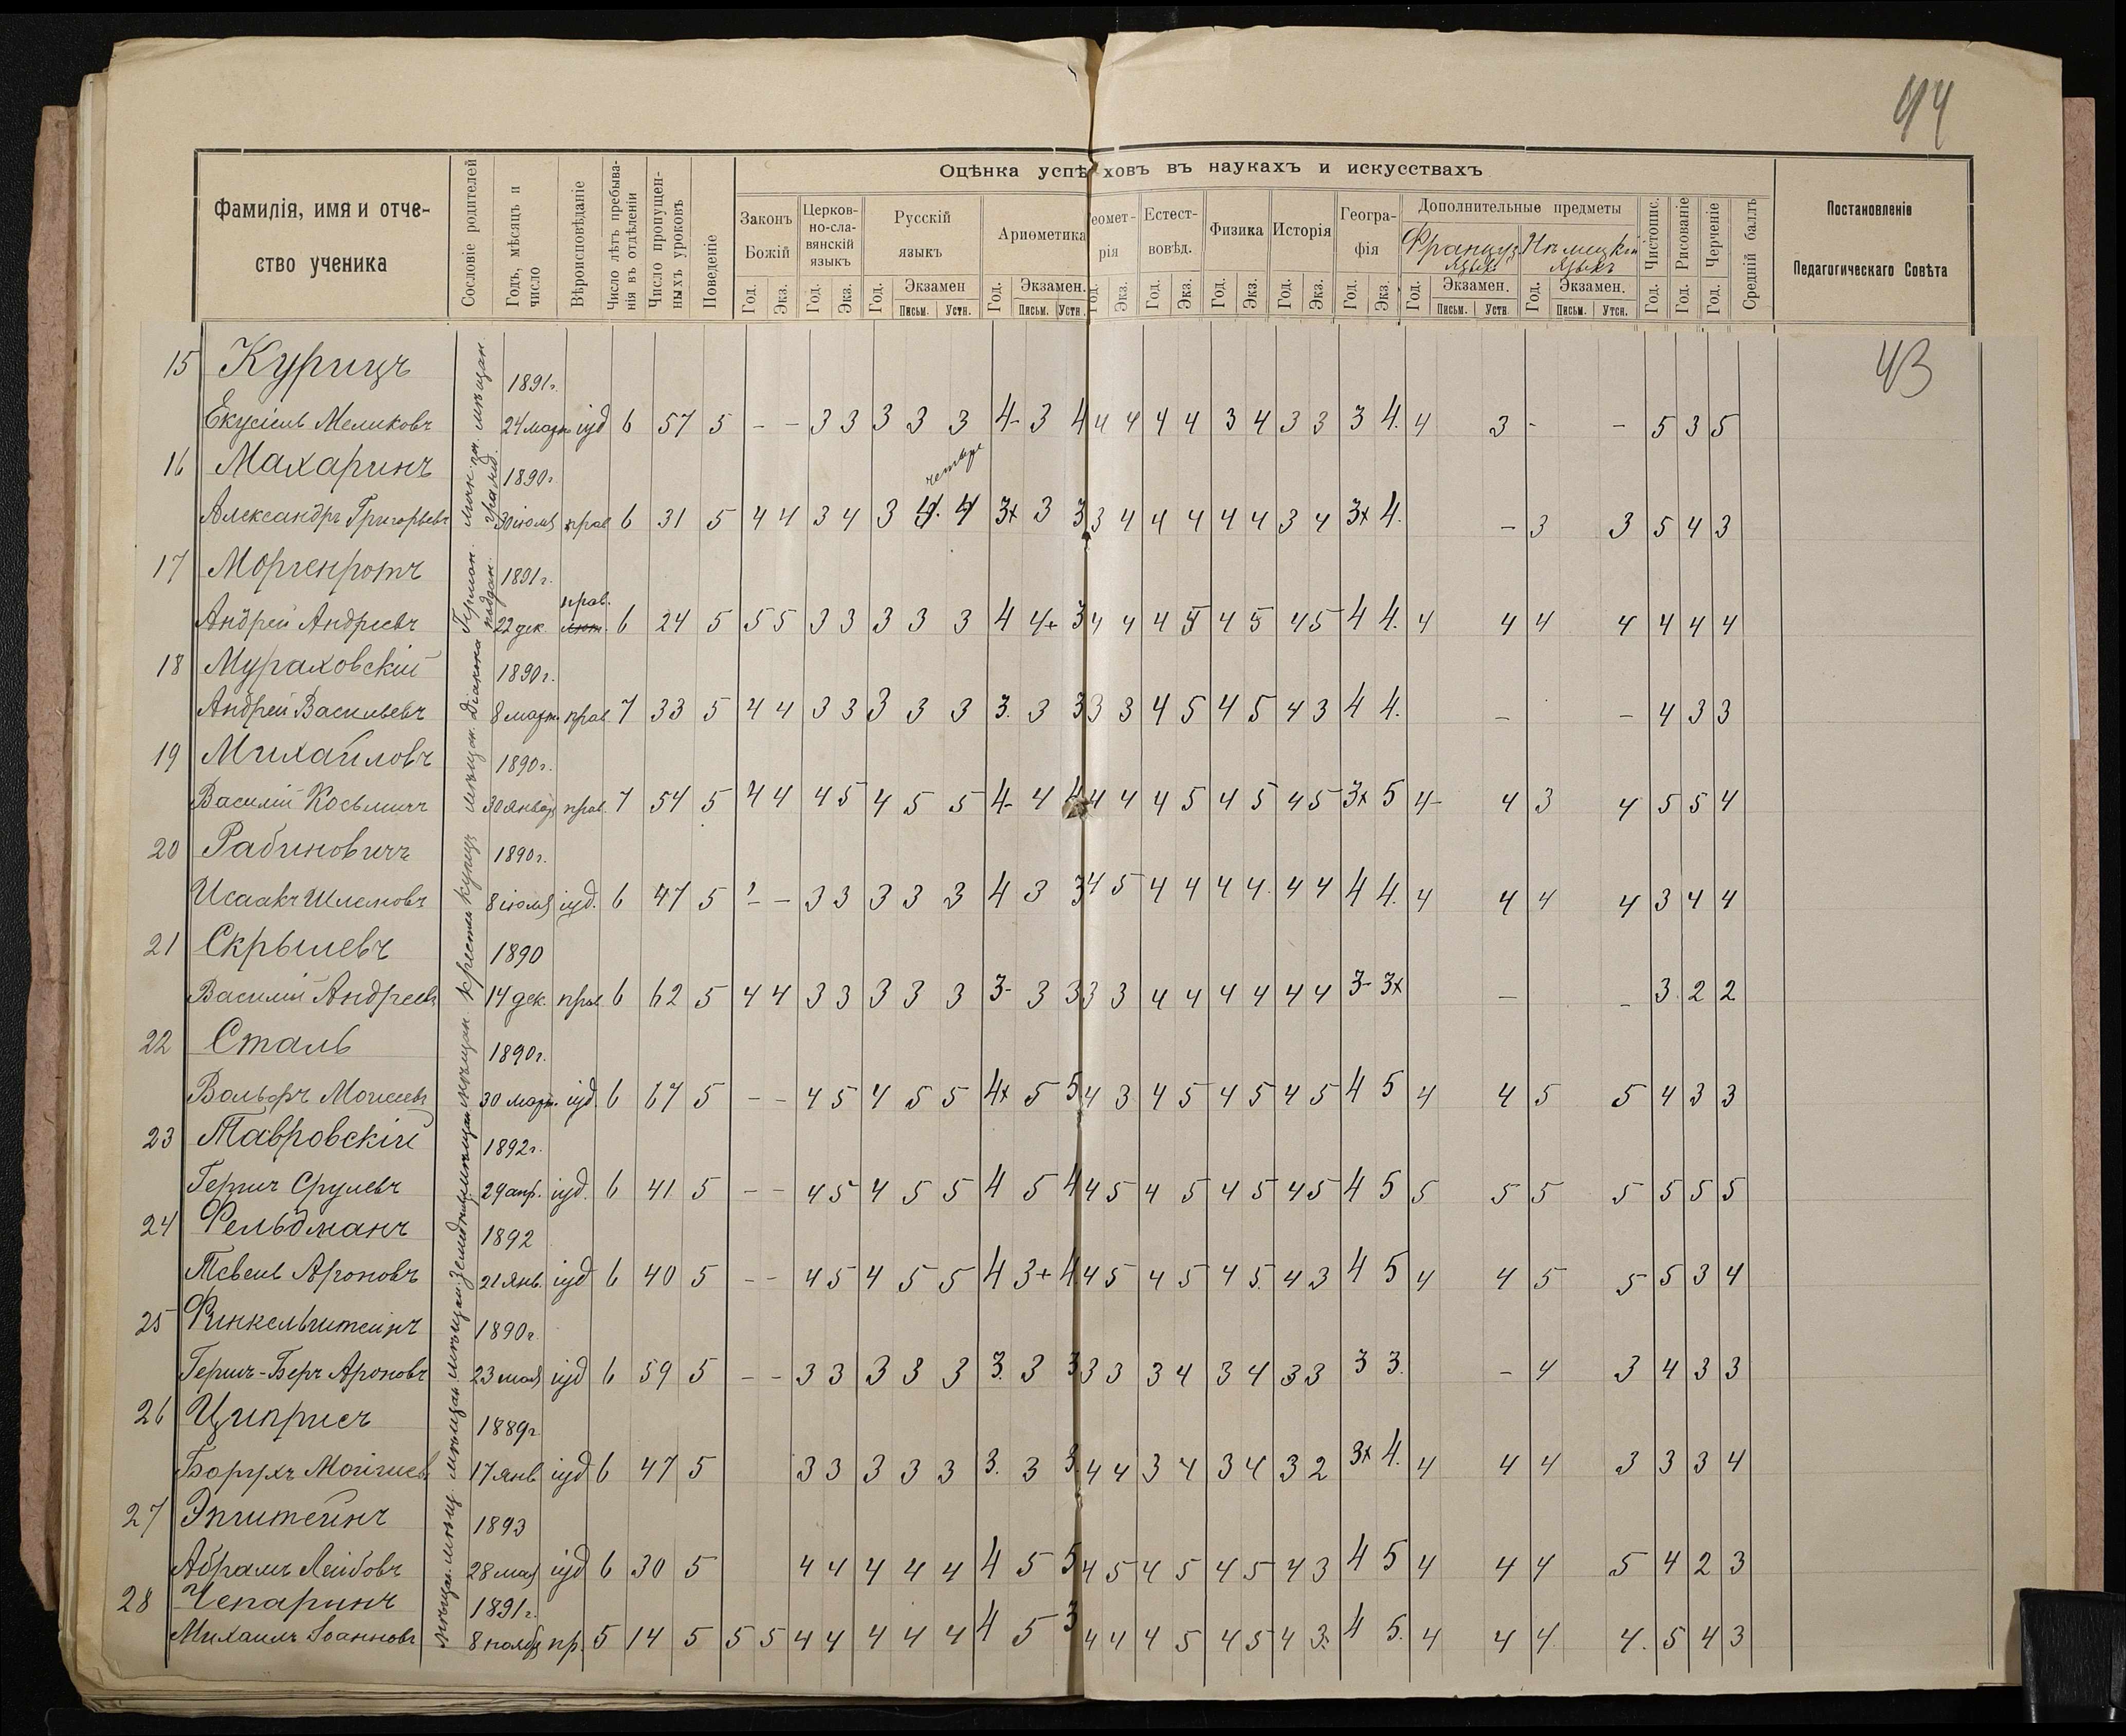 44
Оцѣнка успѣховъ въ наукахъ и искусствахъ
Фамилія, имя и отче-
ство ученика
Сословіе родителей
Годъ, мѣсяцъ и
число
Вѣроисповѣданіе
Число лѣтъ пребыва-
нія въ отдѣленіи
Число пропущен-
ныхъ уроковъ
Поведеніе
Законъ
Божій
Церков-
но-сла-
вянскій
языкъ
Русскій
языкъ
Ариѳметика
Геомет-
рія
Естест-
вовѣд.
Физика
Исторія
Геогра-
фія
Дополнительные предметы
Француз.
языкъ
Нѣмецкій
языкъ
Чистопис.
Рисованіе
Черченіе
Средній баллъ
Постановленіе
Педагогическаго Совѣта
Год. Экз. Год. Экз. Год. Экзамен Письм. Устн. Год. Экзамен. Письм. Устн. Год. Экз. Год. Экз. Год. Экз. Год. Экз. Год. Экз. Год. Экзамен. Письм. Устн. Год. Экзамен. Письм. Утсн. Год. Год. Год.
43
15 Курицъ 1891г.
Екусіель Меликовъ мѣщан. 24 март іуд 6 57 5 - - 3 3 3 3 3 4- 3 4 4 4 4 4 3 4 3 3 3 4. 4 3 - - 5 3 5
16 Махаринъ 1890г. четыре
Александръ Григорьевъ 30 іюля прав 6 31 5 4 4 3 4 3 4. 4 3x 3 3 3 4 4 4 4 4 3 4 3x 4. - 3 3 5 4 3
17 Моргенротъ 1891г. прав.
Андрей Андреевъ Герман. поддан. 22 дек. лют. 6 24 5 5 5 3 3 3 3 3 4 4+ 3 4 4 4 5 4 5 4 5 4 4. 4 4 4 4 4 4 4
18 Мураховскій 1890г.
Андрей Васильевъ Діакона 8 март прав 7 33 5 4 4 3 3 3 3 3 3. 3 3 3 3 4 5 4 5 4 3 4 4. - - 4 3 3
19 Михайловъ 1890г.
Василій Косьмичъ мѣщан. 30 январ прав. 7 54 5 4 4 4 5 4 5 5 4- 4 4 4 4 4 5 4 5 4 5 3x 5 4- 4 3 4 5 5 4
20 Рабиновичъ 1890г.
Исаакъ Шлемовъ купец 8 іюля іуд. 6 47 5 - - 3 3 3 3 3 4 3 3 4 5 4 4 4 4 4 4 4 4. 4 4 4 4 3 4 4
21 Скрылевъ 1890
Василій Андреевъ крестьян 14 дек прав 6 62 5 4 4 3 3 3 3 3 3- 3 3 3 3 4 4 4 4 4 4 3- 3x - - 3. 2 2
22 Сталь 1890г.
Вольфъ Моисеевъ мѣщан. 30 март. іуд. 6 67 5 - - 4 5 4 5 5 4x 5 5 4 3 4 5 4 5 4 5 4 5 4 4 5 5 4 3 3
23 Тавровскій 1892г.
Гершъ Срулевъ мѣщан 29 апр. іуд. 6 41 5 - - 4 5 4 5 5 4 5 4 4 5 4 5 4 5 4 5 4 5 5 5 5 5 5 5 5
24 Фельдманъ 1892
Тевель Ароновъ 21 янв. іуд 6 40 5 - - 4 5 4 5 5 4 3+ 4 4 5 4 5 4 5. 4 3 4 5 4 4 5 5 5 3 4
25 Финкельштейнъ 1890г.
Гершъ-Беръ Ароновъ мѣщан 23 мая іуд 6 59 5 - - 3 3 3 3 3 3. 3 3 3 3 3 4 3 4 3 3 3 3. - 4 3 4 3 3
26 Циприсъ 1889г
Борухъ мѣщан. 17 янв іуд 6 47 5 3 3 3 3 3 3. 3 3 4 4 3 4 3 4 3 2 3x 4. 4 4 4 3 3 3 4
27 Эпштейнъ 1893
Абрамъ Лейбовъ мѣщ. 28 мая іуд 6 30 5 4 4 4 4 4 4 5 5 4 5 4 5 4 5 4 3 4 5 4 4 4 5 4 2 3
28 Чепаринъ 1891г.
Михаилъ Іоанновъ мѣщан. 8 ноябр пр. 5 14 5 5 5 4 4 4 4 4 4 5 3 4 4 4 5 4 5 4 3. 4 5. 4 4 4. 4. 5 4 3